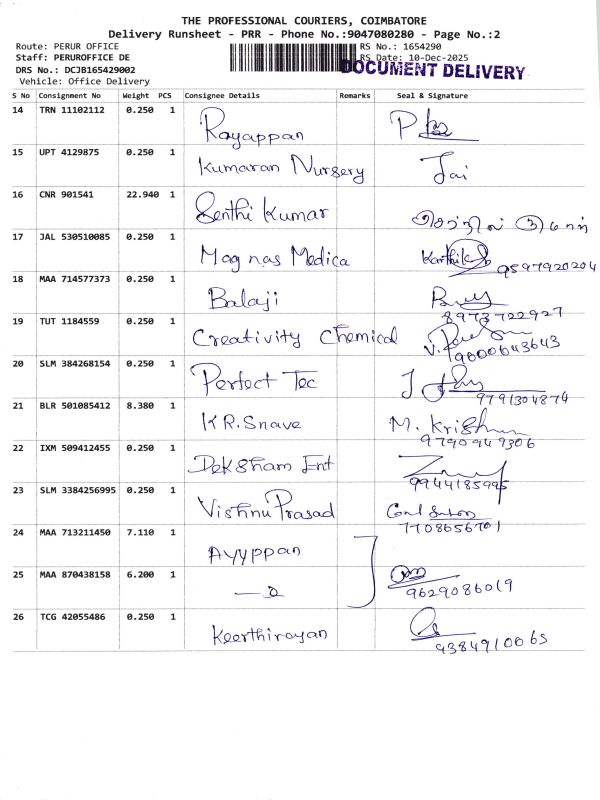 THE PROFESSIONAL COURIERS, COIMBATORE
Delivery Runsheet - PRR - Phone No.:9047080280 - Page No.:2
Route: PERUR OFFICE RS No.: 1654290
Staff: PERUROFFICE DE RS Date: 10-Dec-2025
DOCUMENT DELIVERY
DRS No.: DCJB165429002
Vehicle: Office Delivery
S No Consignment No Weight PCS Consignee Details Remarks Seal & Signature
14 TRN 11102112 0.250 1 Rayappan
15 UPT 4129875 0.250 1 Kumaran Nursery Jai
16 CNR 901541 22.940 1 Senthi Kumar
17 JAL 530510085 0.250 1 Mag nas Medica Karthik 9597920204
18 MAA 714577373 0.250 1 Balaji 8973722927
19 TUT 1184559 0.250 1 Creativity Chemical 9600643643
20 SLM 384268154 0.250 1 Perfect Tec 9791304874
21 BLR 501085412 8.380 1 K.R.Snave M. Krishnan 9790949306
22 IXM 509412455 0.250 1 Deksham Ent 9944185995
23 SLM 3384256995 0.250 1 Vishnu Prasad 7708656701
24 MAA 713211450 7.110 1 Ayyppan
25 MAA 870438158 6.200 1 9629086019
26 TCG 42055486 0.250 1 Keerthirayan 9384910065